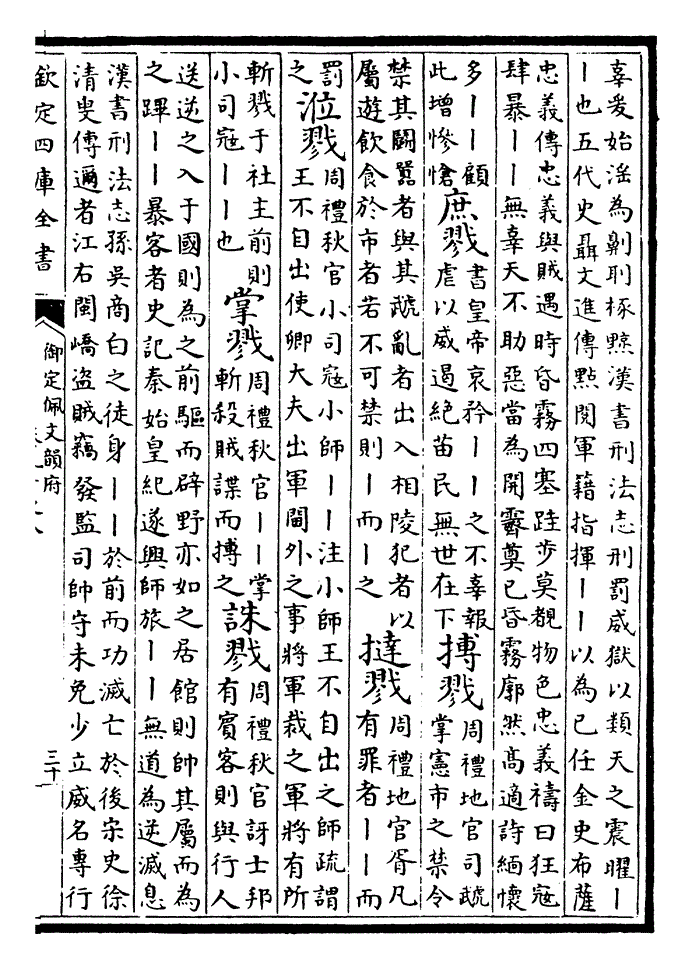 辜爰始淫為劓刵椓黥漢書刑法志刑罰威獄以類天之震曜丨
丨也五代史聶文進傳點閱軍籍指揮丨丨以為已任金史布薩
忠義傳忠義與賊遇時昏霧四塞跬步莫覩物色忠義禱曰狂寇
肆暴丨丨無辜天不助惡當為開霽奠已昏霧廓然高適詩緬懷
多丨丨顧
此增慘愴
庶戮
書皇帝哀矜丨丨之不辜報
虐以威遏絕苗民無世在下
搏戮
周禮地官司虣
掌憲市之禁令
禁其鬬囂者與其虣亂者出入相陵犯者以
屬遊飲食於市者若不可禁則丨而丨之
撻戮
周禮地官胥凡
有罪者丨丨而
罰
之
涖戮
周禮秋官小司寇小師丨丨注小師王不自出之師疏謂
王不自出使卿大夫出軍閫外之事將軍裁之軍將有所
斬戮于社主前則
小司寇丨丨也
掌戮
周禮秋官丨丨掌
斬殺賊諜而搏之
誅戮
周禮秋官訝士邦
有賓客則與行人
送逆之入于國則為之前驅而辟野亦如之居館則帥其屬而為
之蹕丨丨暴客者史記秦始皇紀遂興師旅丨丨無道為逆滅息
漢書刑法志孫吳商白之徒身丨丨於前而功滅亡於後宋史徐
清叟傳邇者江右閩嶠盜賊竊發監司帥守未免少立威名專行
欽定四庫全書
御定佩文韻府
三十